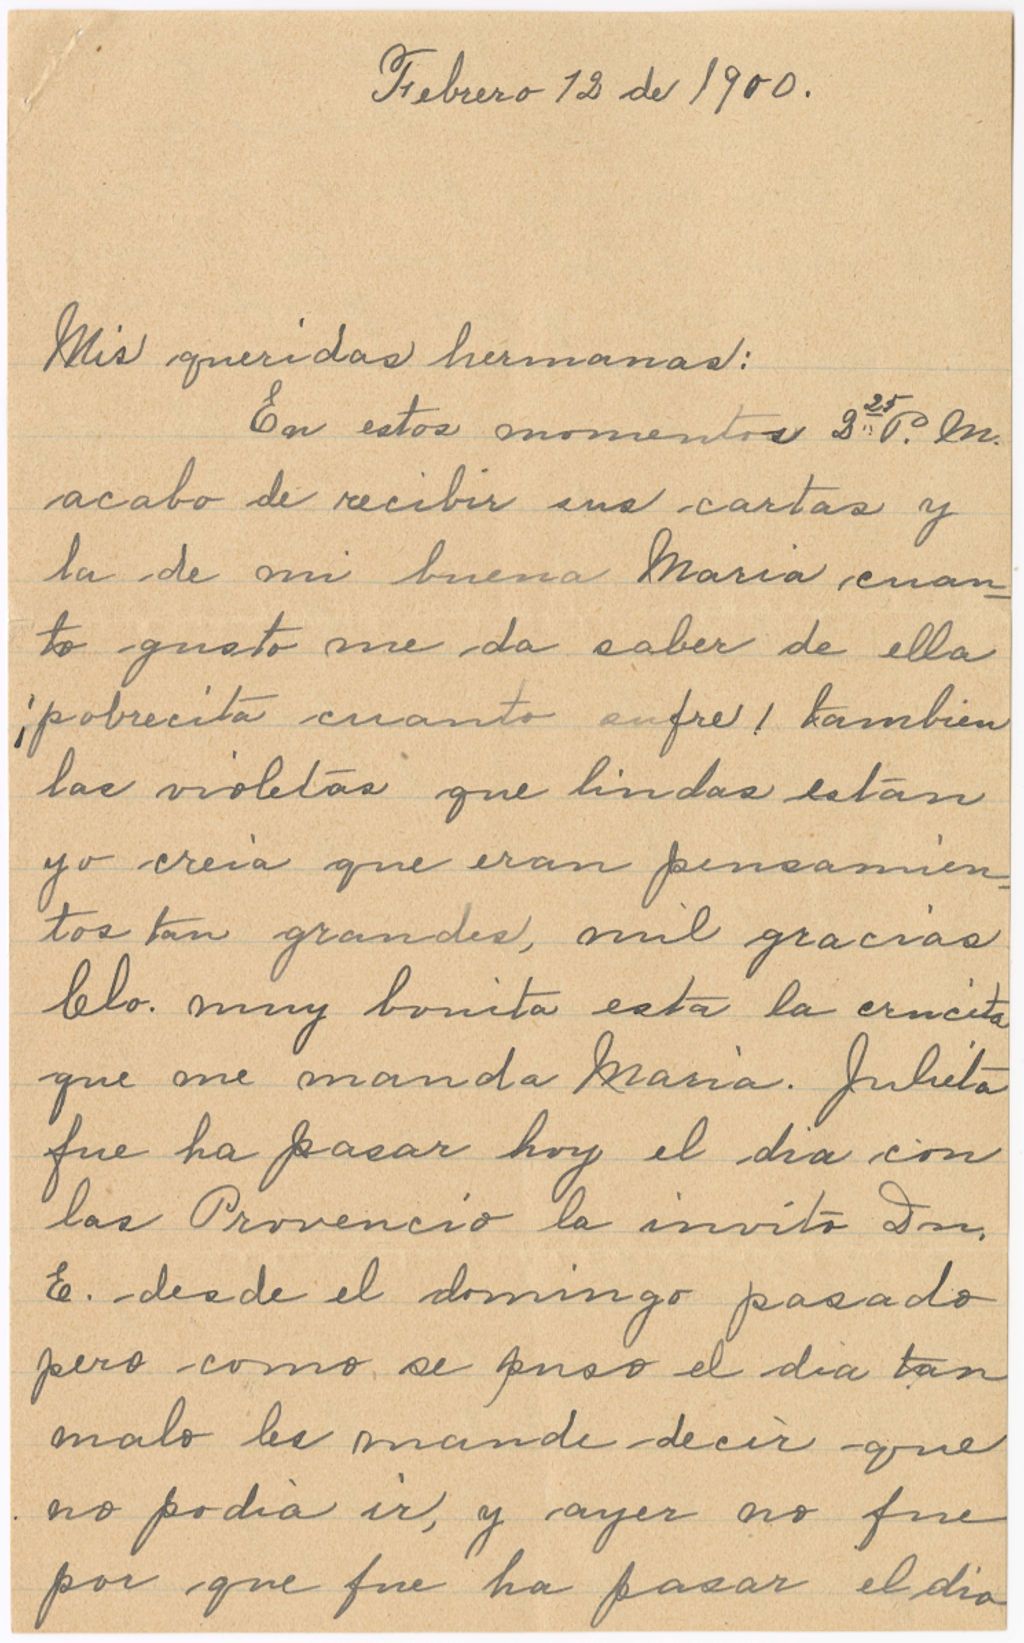 Febrero 12 de 1900.
Mis queridas hermanas:
En estos momentos 2 25 P. M.
acabo de recibir sus cartas y
la de mi buena Maria cuan-
to gusto me da saber de ella
¡pobrecita cuanto sufre! tambien
las violetas que lindas estan
yo creia que eran pensamien-
tos tan grandes, mil gracias
Clo. muy bonita esta la crucita
que me manda Maria. Julieta
fue ha pasar hoy el dia con
las Provencio la invito Dn.
E. desde el domingo pasado
pero como se puso el dia tan
malo les mande decir que
no podia ir, y ayer no fue
por que fue ha pasar el dia